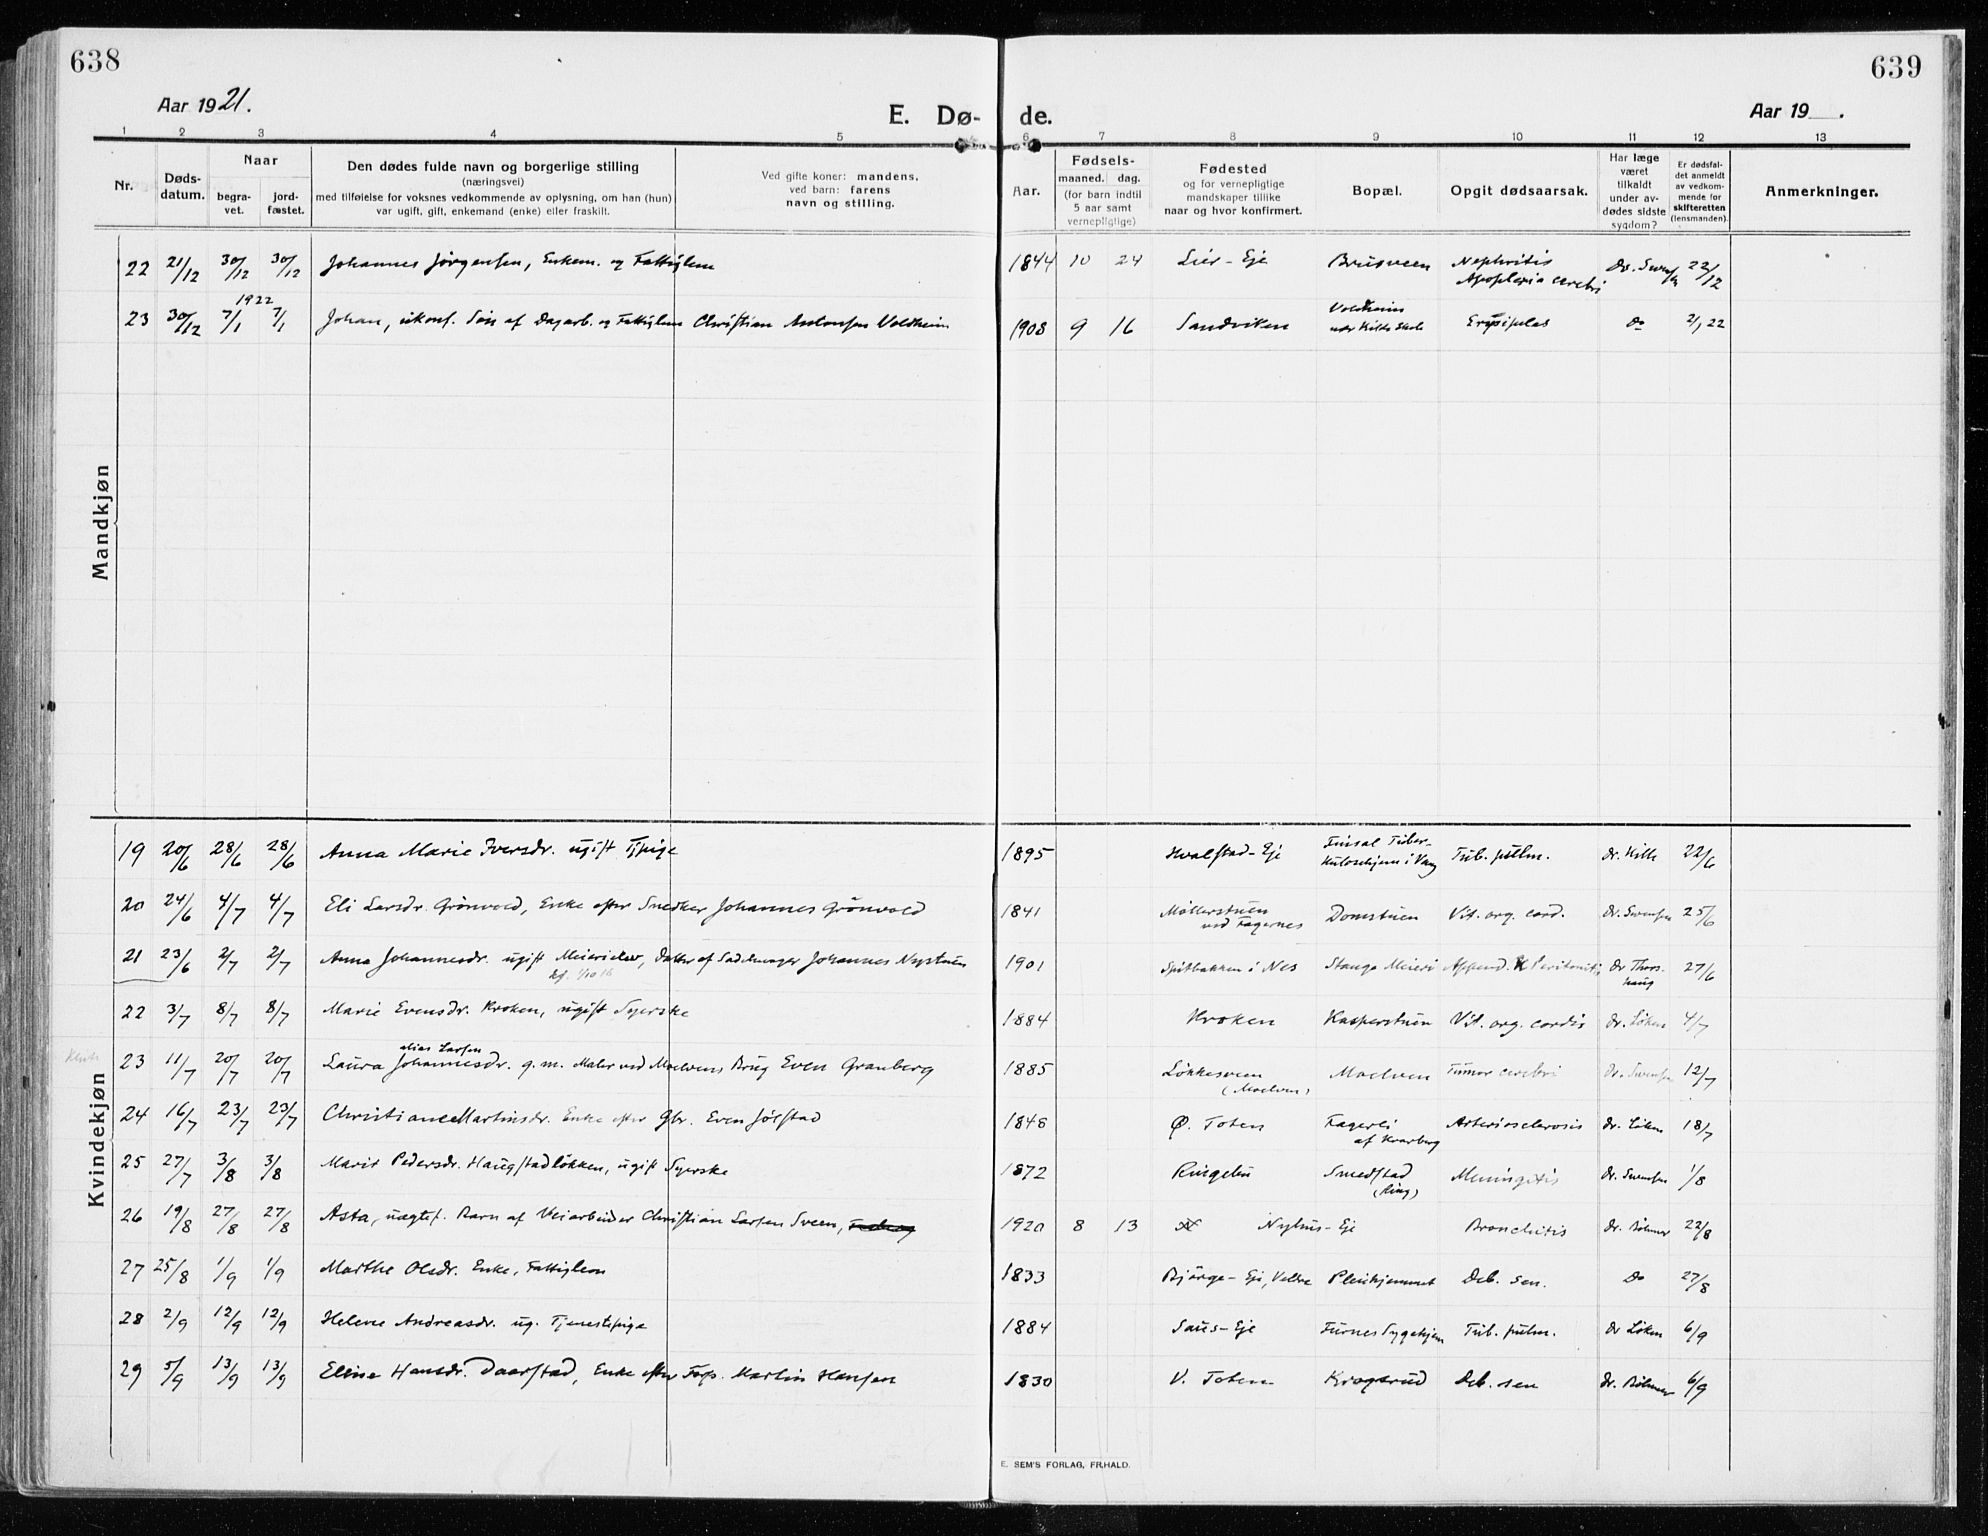 638
639
Aar 1921.
E. Dø- de.
Aar 19 .
1 2 3 4 5 6 7 8 9 10 11 12 13
Nr.
Døds-
datum.
Naar
begra-
vet.
jord-
fæstet.
Den dødes fulde navn og borgerlige stilling
(næringsvei)
med tilføielse for voksnes vedkommende av oplysning, om han (hun)
var ugift, gift, enkemand (enke) eller fraskilt.
Ved gifte koner: mandens,
ved barn: farens
navn og stilling.
Aar.
Fødsels-
maaned. dag.
(for barn indtil
5 aar samt
vernepligtige)
Fødested
og for vernepligtige
mandskaper tillike
naar og hvor konfirmert.
Bopæl.
Opgit dødsaarsak.
Har læge
været
tilkaldt
under av-
dødes sidste
sygdom?
Er dødsfal-
det anmeldt
av vedkom-
mende for
skifteretten
(lensmanden).
Anmerkninger.
Mandkjøn
22 21/12 30/12 30/12 Johannes Jørgensen, Enkem. og Fattiglem 1844 10 24 Lier - Eje Brusveen Nephritis Apoplexia cerebri Dr. Svensen 22/12
1922
23 30/12 7/1 7/1 Johan, ukonf. Søn af Dagarb. og Fattiglem Christian Antonsen Voldheim 1908 9 16 Sandviken Voldheim nær Kilde Skole Erysipelas Do 2/1 22
Kvindekjøn
19 20/6 28/6 28/6 Anna Marie Iversdr. ugift Tj.pige 1895 Hvalstad-Eje Finsal Tuber-kulosehjem i Vang Tub. pulm. Dr. Kilde 22/6
20 24/6 4/7 4/7 Eli Larsdr. Grönvold, Enke efter Snedker Johannes Grönvold 1841 Møllerstuen ved Fagernes Domstuen Vit. org. cord. Dr. Svensen 25/6
21 23/6 2/7 2/7 Anna Johannesdr. ugift Meierielev, Datter af Sadelmager Johannes Nystuen 1901 Spitbakken i Nes Stange Meieri Append. & Peritonitis Dr Thors-haug 27/6
kf. 1/10 16
22 3/7 8/7 8/7 Marie Evensdr. Kroken, ugift Syerske 1884 Kroken Kasperstuen Vit. org. cordis Dr. Løken 4/7
alias Larsen
23 11/7 20/7 20/7 Laura Johannesdr. g.m. Maler ved Moelvens Brug Even Granberg 1885 Løkkesveen (Moelven) Moelven Tumor cerebri Dr. Svensen 12/7
24 16/7 23/7 23/7 Christiane Martinsdr. Enke efter Gbr. Even Jølstad 1848 Ø. Toten Fagerli af Kvarberg Arteriosclerosis Dr. Løken 18/7
25 27/7 3/8 3/8 Marit Pedersdr. Haugstadløkken, ugift Syerske 1872 Ringebu Smedstad (Ring) Meningitis Dr. Svensen 1/8
26 19/8 27/8 27/8 Asta, uægtef. Barn af Veiarbeider Christian Larsen Sveen, 1920 8 13 Nyhus-Eje Bronchitis Dr. Böhmer 22/8
27 25/8 1/9 1/9 Marthe Olsdr. Enke, Fattiglem 1833 Bjørge-Eje, Veldre Pleiehjemmet Deb. sen. Do 27/8
28 2/9 12/9 12/9 Helene Andreasdr. ug. Tjenestepige 1884 Saus-Eje Furnes Sygehjem Tub. pulm. Dr Løken 6/9
29 5/9 13/9 13/9 Eline Hansdr. Daarstad, Enke efter Fogs. Martin Hansen 1830 V. Toten Krogsrud Deb. sen Dr. Böhmer 6/9
E. SEM'S FORLAG, FR.HALD.